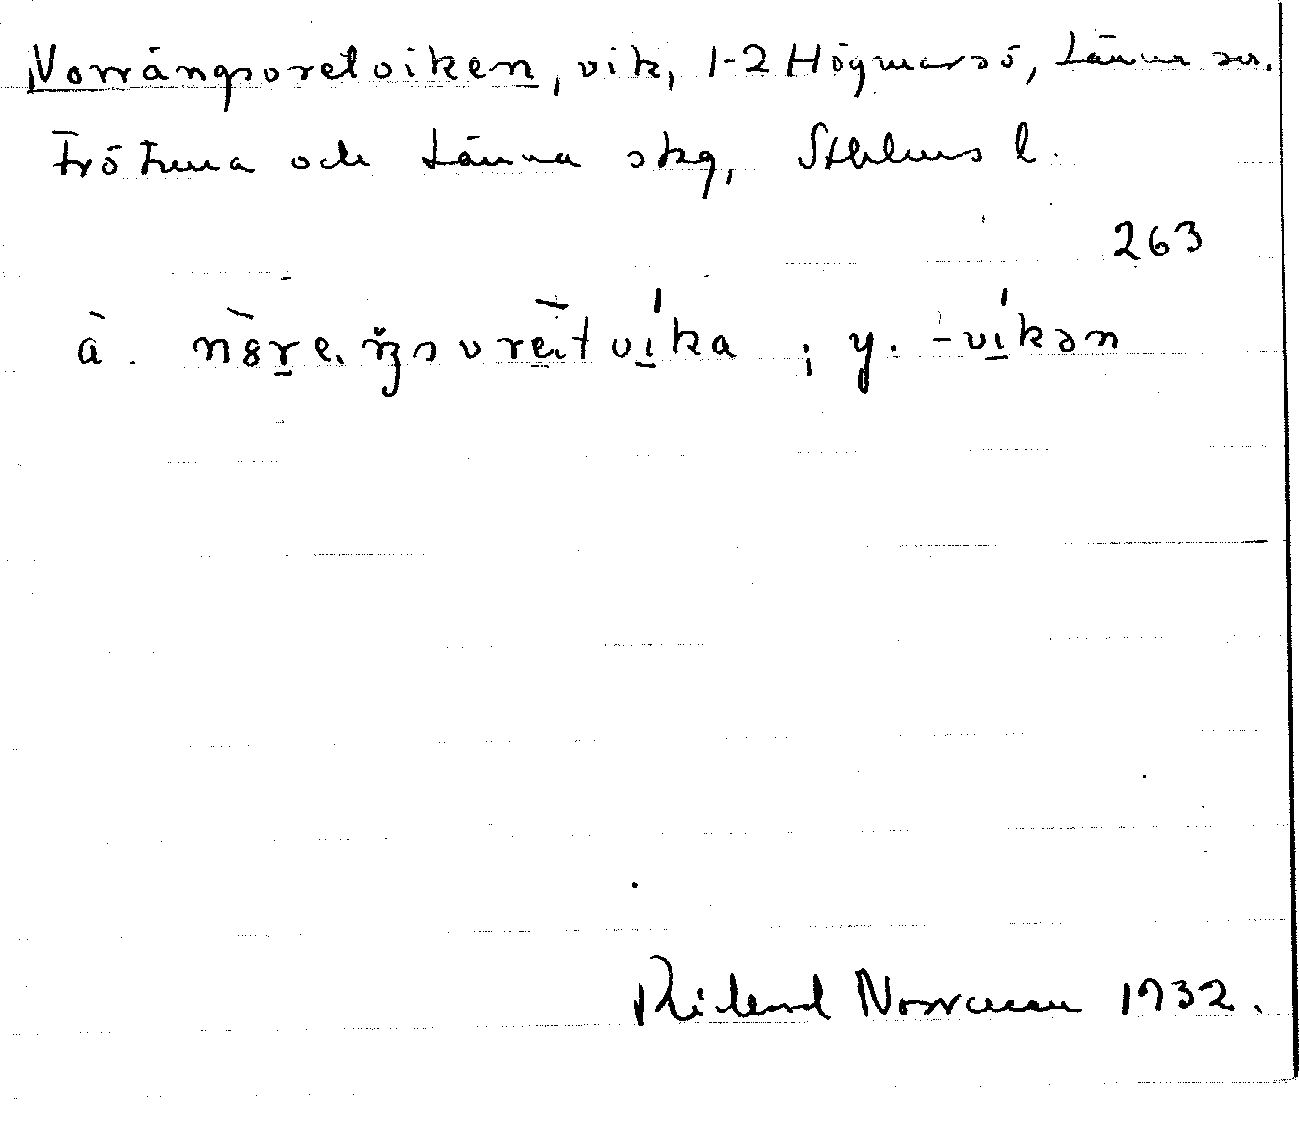 Norrängsoretviken, vik, 1-2 Högmarsö, Länna sn.
Frötuna och Länna skg, Sthlms l.
263
ä. ; y. -víkən
Rikard Norrman 1932.